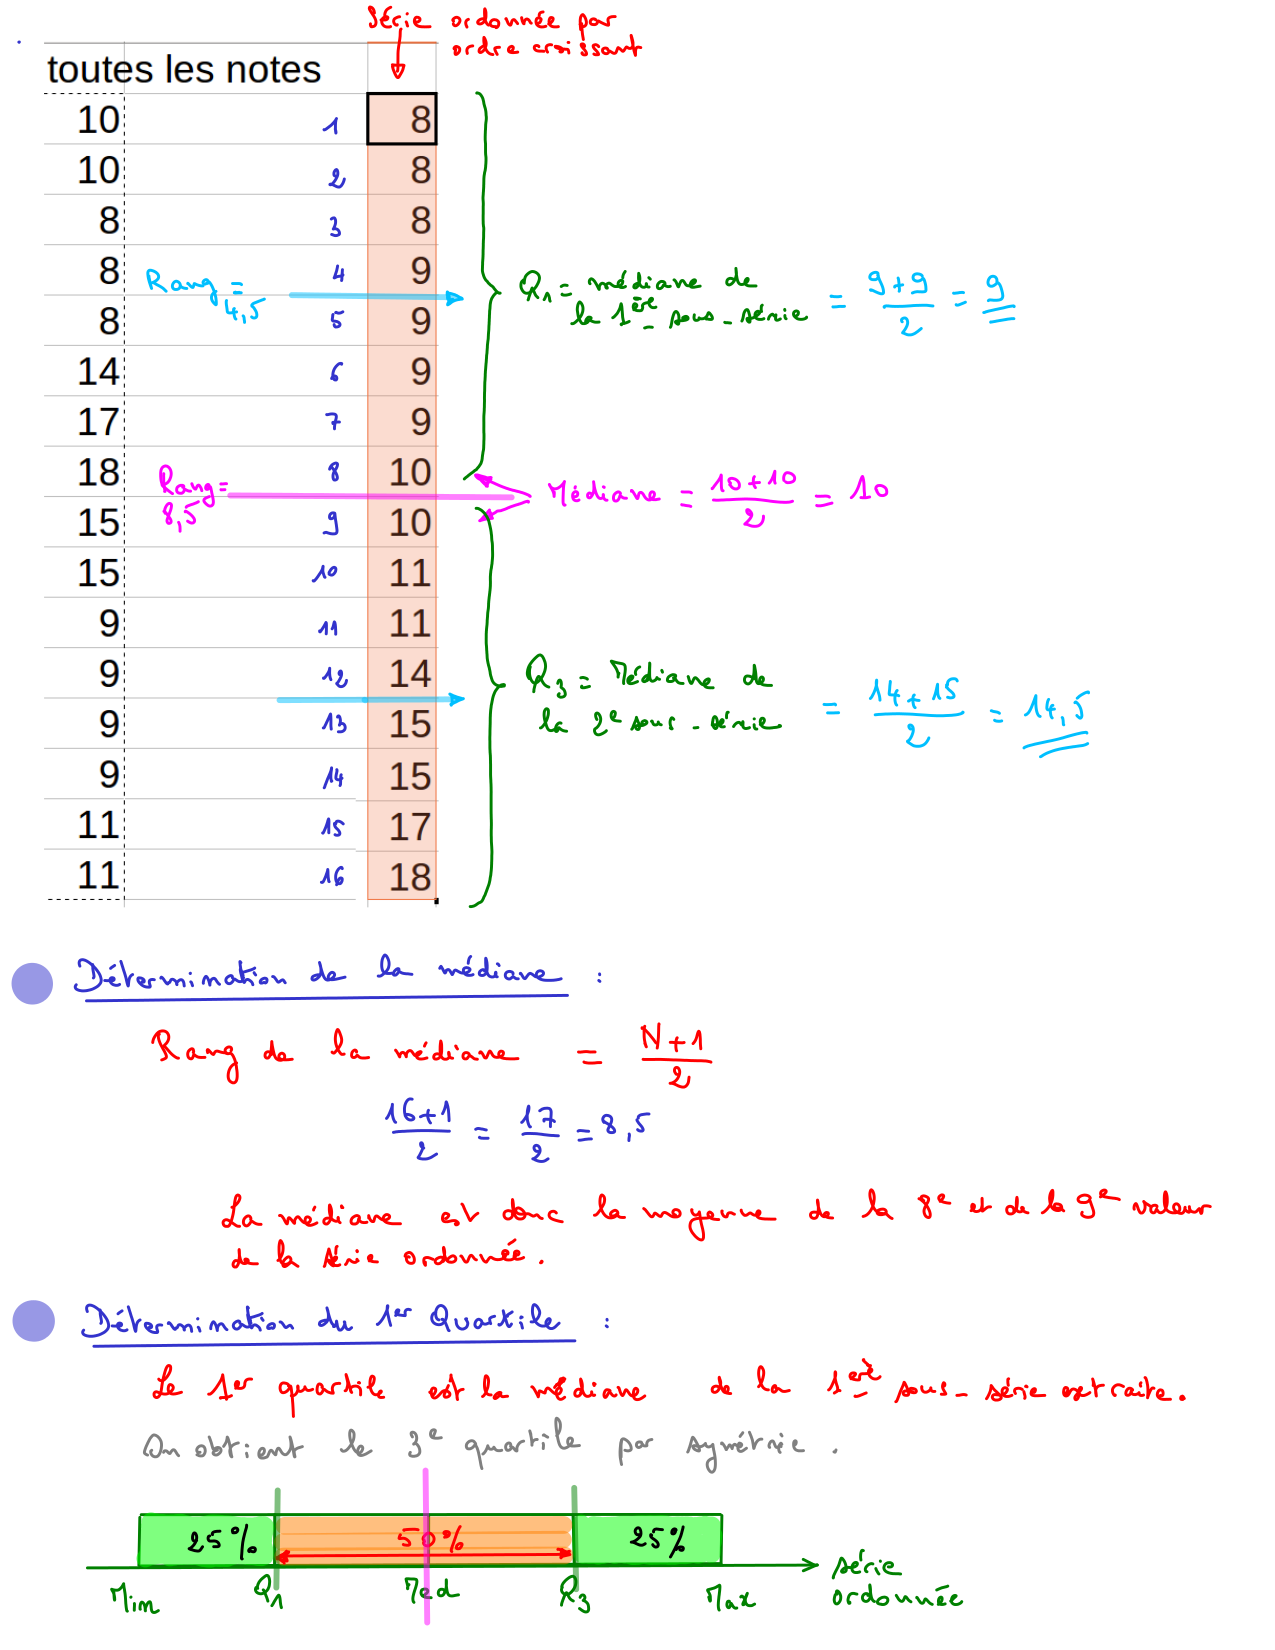 Série ordonnée par
ordre croissant
toutes les notes
10 1 8
10 2 8
8 3 8
8 4 9
Rang = 4,5
Q1 = médiane de
la 1ère sous-série = 9+9/2 = 9
8 5 9
14 6 9
17 7 9
18 8 10
Rang = 8,5
Médiane = 10+10/2 = 10
15 9 10
15 10 11
9 11 11
9 12 14
Q3 = Médiane de
la 2e sous-série = 14+15/2 = 14,5
9 13 15
9 14 15
11 15 17
11 16 18
Détermination de la médiane :
Rang de la médiane = N+1/2
16+1/2 = 17/2 = 8,5
La médiane est donc la moyenne de la 8e et de la 9e valeur
de la série ordonnée.
Détermination du 1er Quartile :
Le 1er quartile est la médiane de la 1ère sous-série extraite.
On obtient le 3e quartile par symétrie.
25% 50% 25%
Min Q1 Med Q3 Max
série
ordonnée